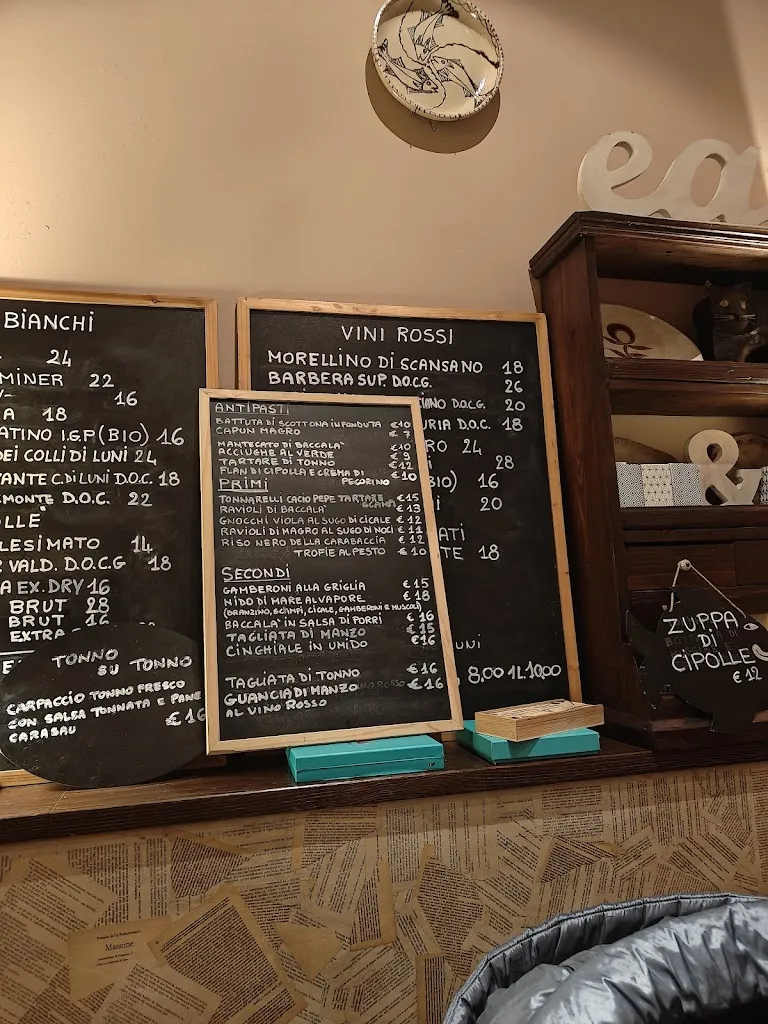 ea
BIANCHI
24
MINER 22
16
A 18
ATINO I.G.P (BIO) 16
DEI COLLI DI LUNI 24
TANTE C. DI LUNI D.O.C. 18
EMONTE D.O.C. 22
OLLE'
LESIMATO 14
VALD. D.O.C.G 18
A EX. DRY 16
BRUT 28
BRUT 16
EXTRA
TONNO
SU TONNO
CARPACCIO TONNO FRESCO
CON SALSA TONNATA E PANE
CARASAU €16
VINI ROSSI
MORELLINO DI SCANSANO 18
BARBERA SUP. D.O.C.G. 26
IANO D.O.C.G. 20
URIA D.O.C. 18
RO 24
28
BIO) 16
I 20
ATI
TE 18
UNI
8,00 1L 10,00
ANTIPASTI
BATTUTA DI SCOTTONA IN FONDUTA €10
CAPUN MAGRO € 7
MANTECATO DI BACCALA' €10
ACCIUGHE AL VERDE € 9
TARTARE DI TONNO €12
FLAN DI CIPOLLA E CREMA DI PECORINO €10
PRIMI
TONNARELLI CACIO PEPE TARTARE SCAMPI €15
RAVIOLI DI BACCALA' €13
GNOCCHI VIOLA AL SUGO DI CICALE €12
RAVIOLI DI MAGRO AL SUGO DI NOCI €11
RISO NERO DELLA CARABACCIA €12
TROFIE AL PESTO €10
SECONDI
GAMBERONI ALLA GRIGLIA €15
NIDO DI MARE AL VAPORE €18
(BRANZINO, SCAMPI, CICALE, GAMBERONI E MUSCOLI)
BACCALA' IN SALSA DI PORRI €16
TAGLIATA DI MANZO €15
CINGHIALE IN UMIDO €16
TAGLIATA DI TONNO €16
GUANCIA DI MANZO €16
AL VINO ROSSO
&
ZUPPA
DI
CIPOLLE
€12